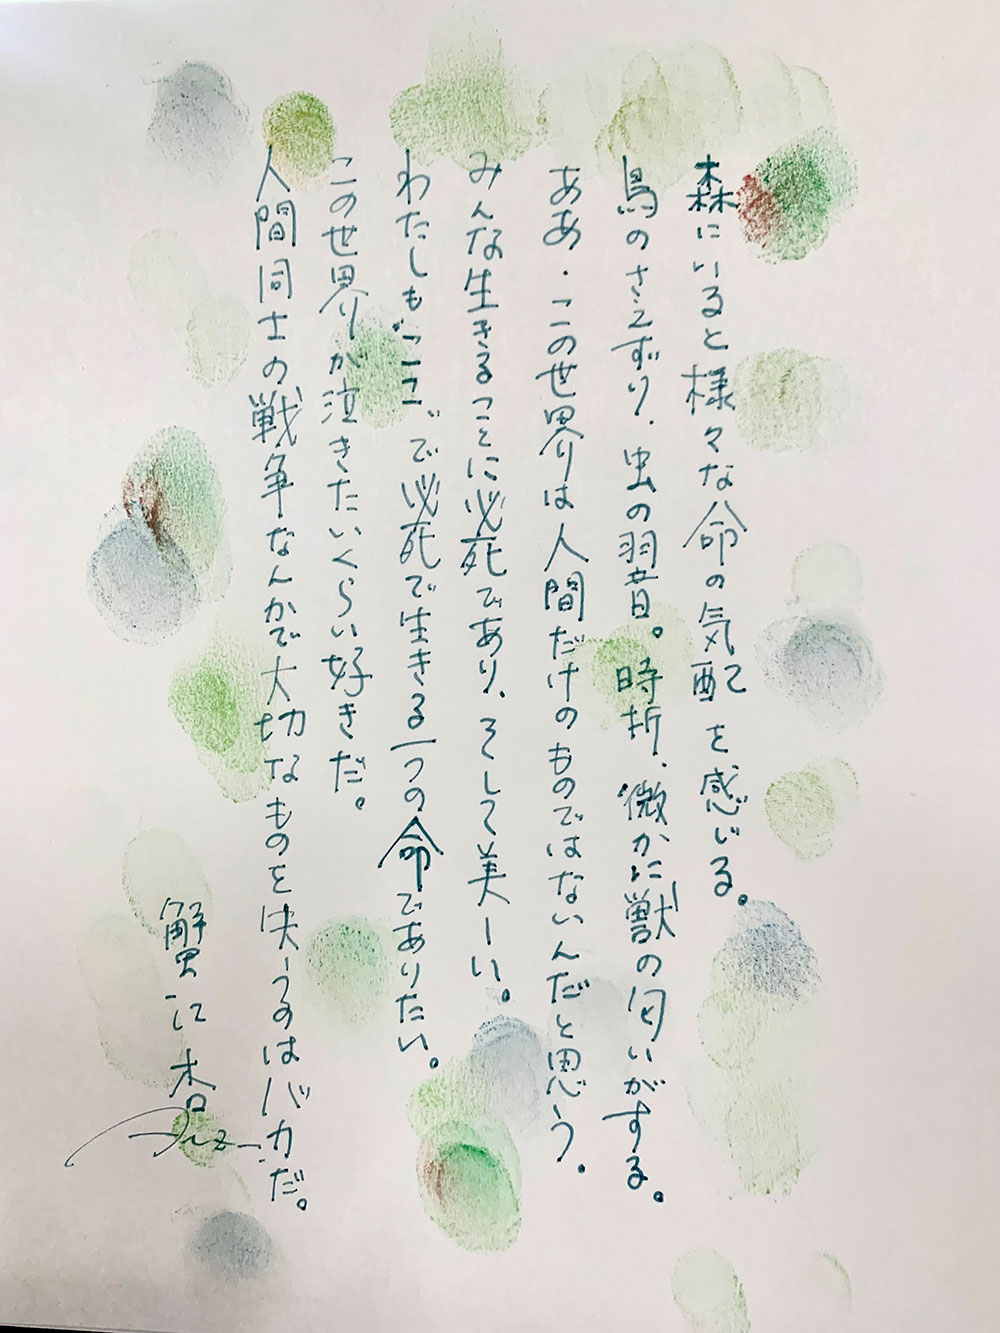 森にいると様々な命の気配を感じる。
鳥のさえずり、虫の羽音。時折、微かに獣の匂いがする。
ああ、この世界は人間だけのものではないんだと思う。
みんな生きることに必死であり、そして美しい。
わたしも“ここ”で必死で生きる一つの命でありたい。
この世界が泣きたいくらい好きだ。
人間同士の戦争なんかで大切なものを失うのはバカだ。
蟹江杏